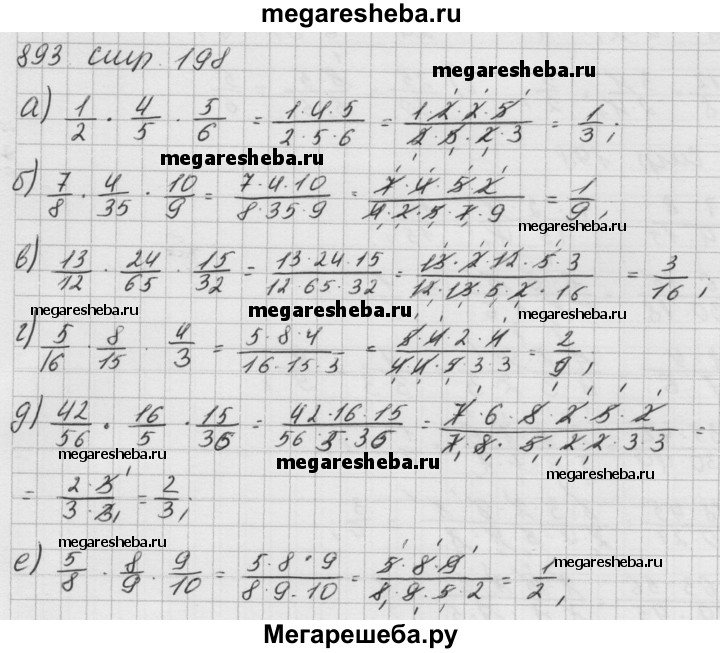 megaresheba.ru
893 стр. 198
megaresheba.ru
а) 1/2 · 4/5 · 5/6 = 1·4·5/2·5·6 = 1·2·2·5/2·5·2·3 = 1/3;
megaresheba.ru
б) 7/8 · 4/35 · 10/9 = 7·4·10/8·35·9 = 7·4·5·2/4·2·5·7·9 = 1/9;
megaresheba.ru
в) 13/12 · 24/65 · 15/32 = 13·24·15/12·65·32 = 13·2·12·5·3/12·13·5·2·16 = 3/16;
megaresheba.ru megaresheba.ru
г) 5/16 · 8/15 · 4/3 = 5·8·4/16·15·3 = 5·4·2·4/4·4·5·3·3 = 2/9;
д) 42/56 · 16/5 · 15/36 = 42·16·15/56·5·36 = 7·6·8·2·5·2/7·8·5·2·2·3·3 =
megaresheba.ru megaresheba.ru megaresheba.ru
= 2·3/3·3 = 2/3;
megaresheba.ru
е) 5/8 · 8/9 · 9/10 = 5·8·9/8·9·10 = 5·8·9/8·9·5·2 = 1/2;
megaresheba.ru
megaresheba.ru
Мегарешеба.ру